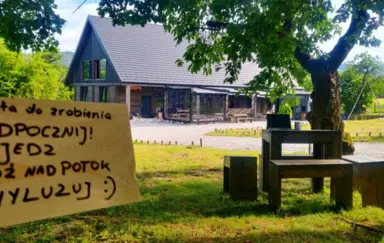 ta do zrobienia
DPOCZNIJ!
JEDZ
Ź NAD POTOK
YLUZUJ :)